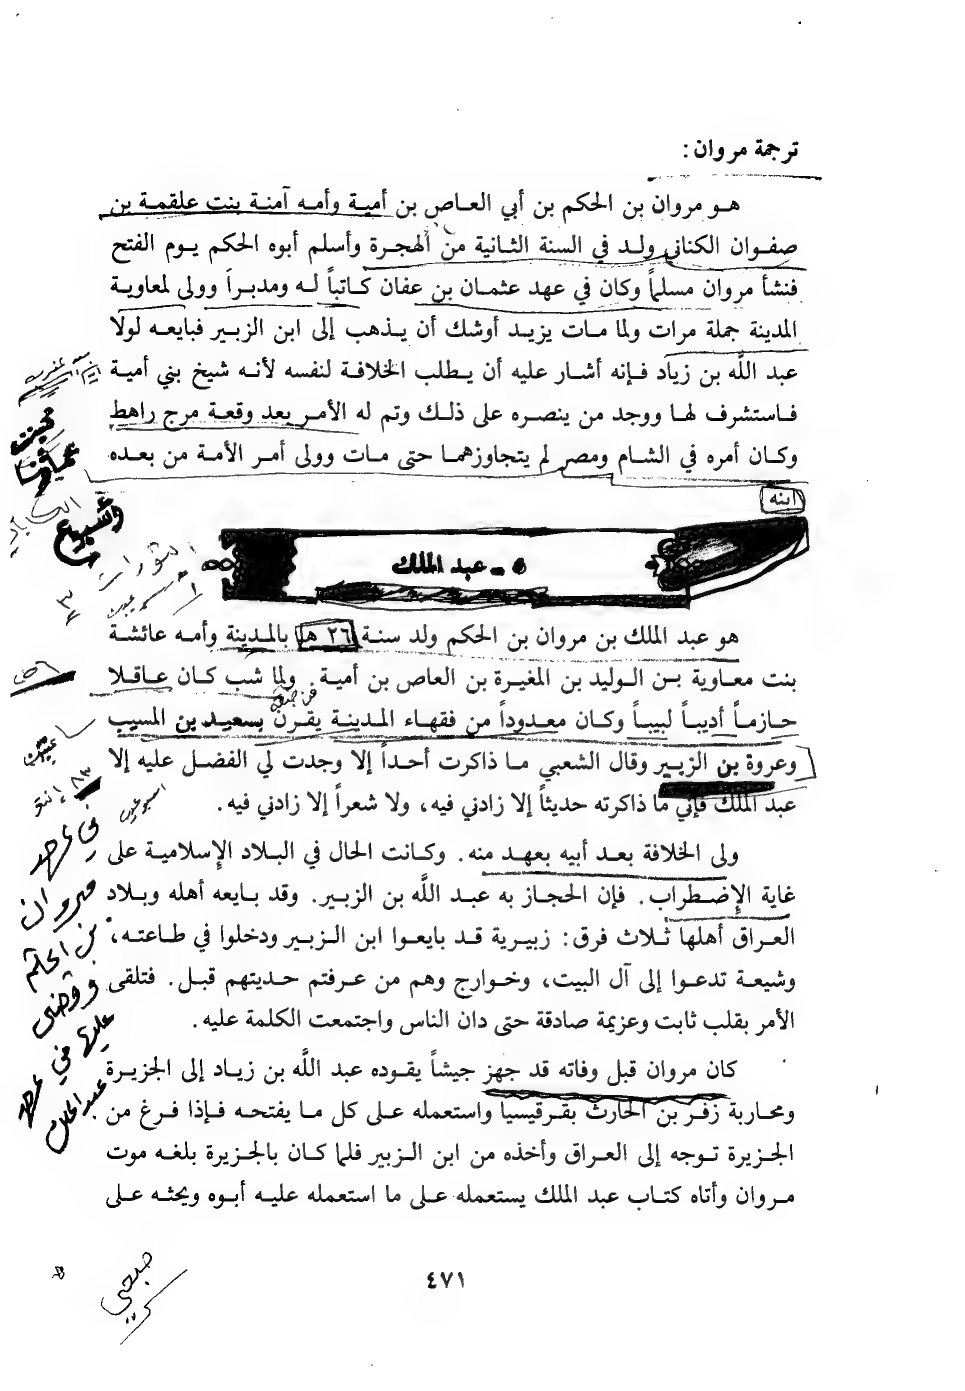 ترجمة مروان :
هـو مروان بن الحكم بن أبي العـاص بن أميـة وأمـه آمنـة بنت علقمـة بن
صفـوان الكناني ولـد في السنة الثـانية من الهجـرة وأسلم أبوه الحكم يـوم الفتح
فنشأ مروان مسلماً وكان في عهد عثمـان بن عفان كـاتباً لـه ومدبـراً وولى لمعاويـة
المدينة جملة مرات ولما مـات يزيـد أوشك أن يـذهب إلى ابن الزبـير فبايعـه لولا
عبد اللَّه بن زياد فـإنه أشـار عليه أن يـطلب الخلافـة لنفسه لأنـه شيخ بني أميـة
فـاستشرف لهـا ووجد من ينصـره على ذلـك وتم له الأمـر بعد وقعـة مرج راهط
وكـان أمره في الشـام ومصر لم يتجاوزهمـا حتى مـات وولى أمـر الأمـة من بعـده
ابنه
٥ ـ عبد الملك
هو عبد الملك بن مروان بن الحكم ولد سنـة ٢٦ هـ بالمـدينة وأمـه عائشـة
بنت معـاوية بـن الـوليد بن المغيـرة بن العاص بن أميـة . ولما شب كـان عـاقـلا
حـازمـاً أديبـاً لبيبـاً وكـان معـدوداً من فقهـاء المدينـة يقـرن بسعيـد بن المسيب
وعروة بن الزبـير وقال الشعبي مـا ذاكرت أحـداً إلا وجدت لي الفضـل عليه إلا
عبد الملك فإني ما ذاكرته حديثاً إلا زادني فيه، ولا شعراً إلا زادني فيه.
ولى الخلافـة بعـد أبيه بعهـد منه. وكـانت الحال في البـلاد الإسلاميـة على
غاية الإضـطراب. فإن الحجـاز به عبـد اللَّه بن الزبـير. وقد بـايعه أهله وبـلاد
العـراق أهلهـا ثـلاث فرق: زبـيرية قـد بايعـوا ابن الـزبـير ودخلـوا في طـاعتـه،
وشيعـة تدعـوا إلى آل البيت، وخـوارج وهم من عـرفتم حـديثهم قبـل. فتلقى
الأمر بقلب ثابت وعزيمة صادقة حتى دان الناس واجتمعت الكلمة عليه.
كان مروان قبل وفاته قد جهز جيشـاً يقوده عبـد اللَّه بن زيـاد إلى الجزيـرة
ومحـاربة زفـر بن الحارث بقـرقيسيا واستعملـه على كل مـا يفتحـه فـإذا فـرغ من
الجـزيرة تـوجه إلى العـراق وأخذه من ابن الـزبير فلما كـان بالجـزيرة بلغـه موت
مـروان وأتاه كتـاب عبد الملك يستعمله عـلى مـا استعملـه عليـه أبـوه ويحثـه عـلى
في عهد
مروان
بن الحكم
وقضى
عليها في عهد
عبد الملك
٤٧١